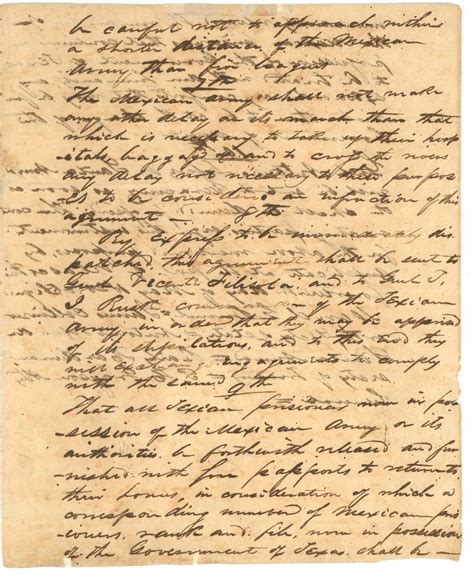 be careful not to approach within
a shorter distance of the Mexican
Army than five leagues
7th
The Mexican army shall not make
any other delay on its march than that
which is necessary to take up their hosp
itals, baggage and to cross the rivers
any delay not necessary to these purpos
es to be considered an infraction of this
agreement — 8th
By Express to be immediately dis
patched, this agreement shall be sent to
Genl Vicente Filisola, and to Genl T.
J. Rusk commander of the Texian
Army, in order that they may be apprised
of its stipulations, and to this end they
will exchange engagements to comply
with the same 9th
That all Texian prisoners now in pos
session of the Mexican Army or its
authorities be forthwith released and fur
nished with free passports to return to
their homes, in consideration of which a
corresponding number of Mexican pris
oners, rank and file, now in possession
of the Government of Texas shall be —